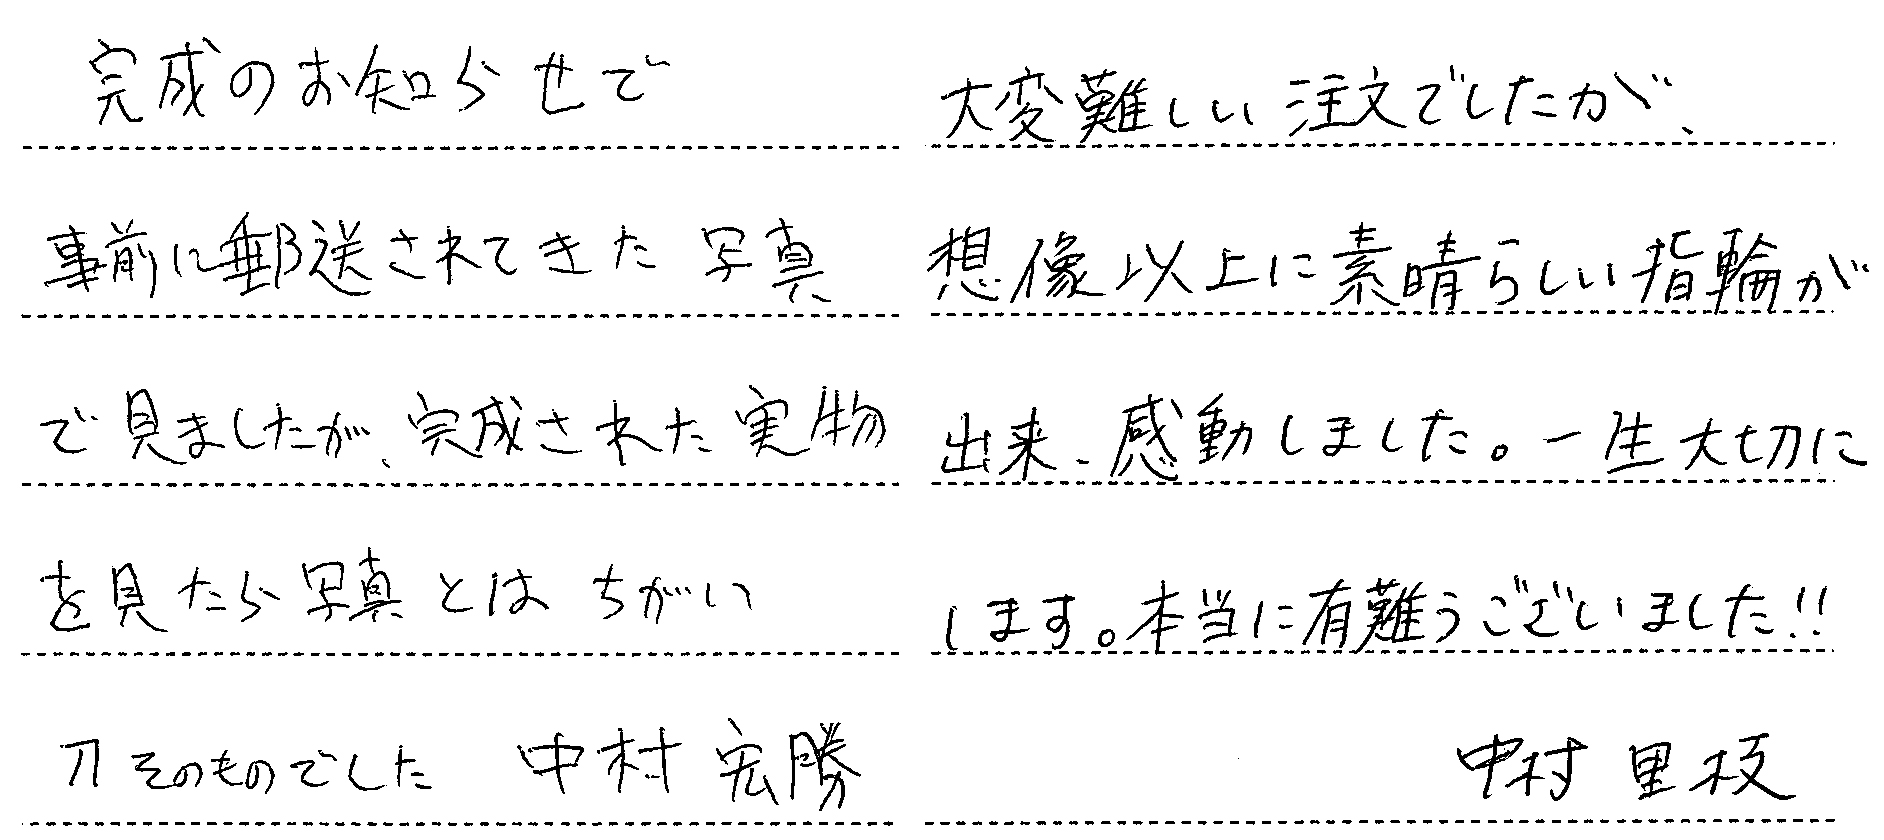 完成のお知らせで
事前に郵送されてきた写真
で見ましたが、完成された実物
を見たら写真とはちがい
刀そのものでした 中村 宏勝
大変難しい注文でしたが、
想像以上に素晴らしい指輪が
出来、感動しました。一生大切に
します。本当に有難うございました!!
中村 里枝